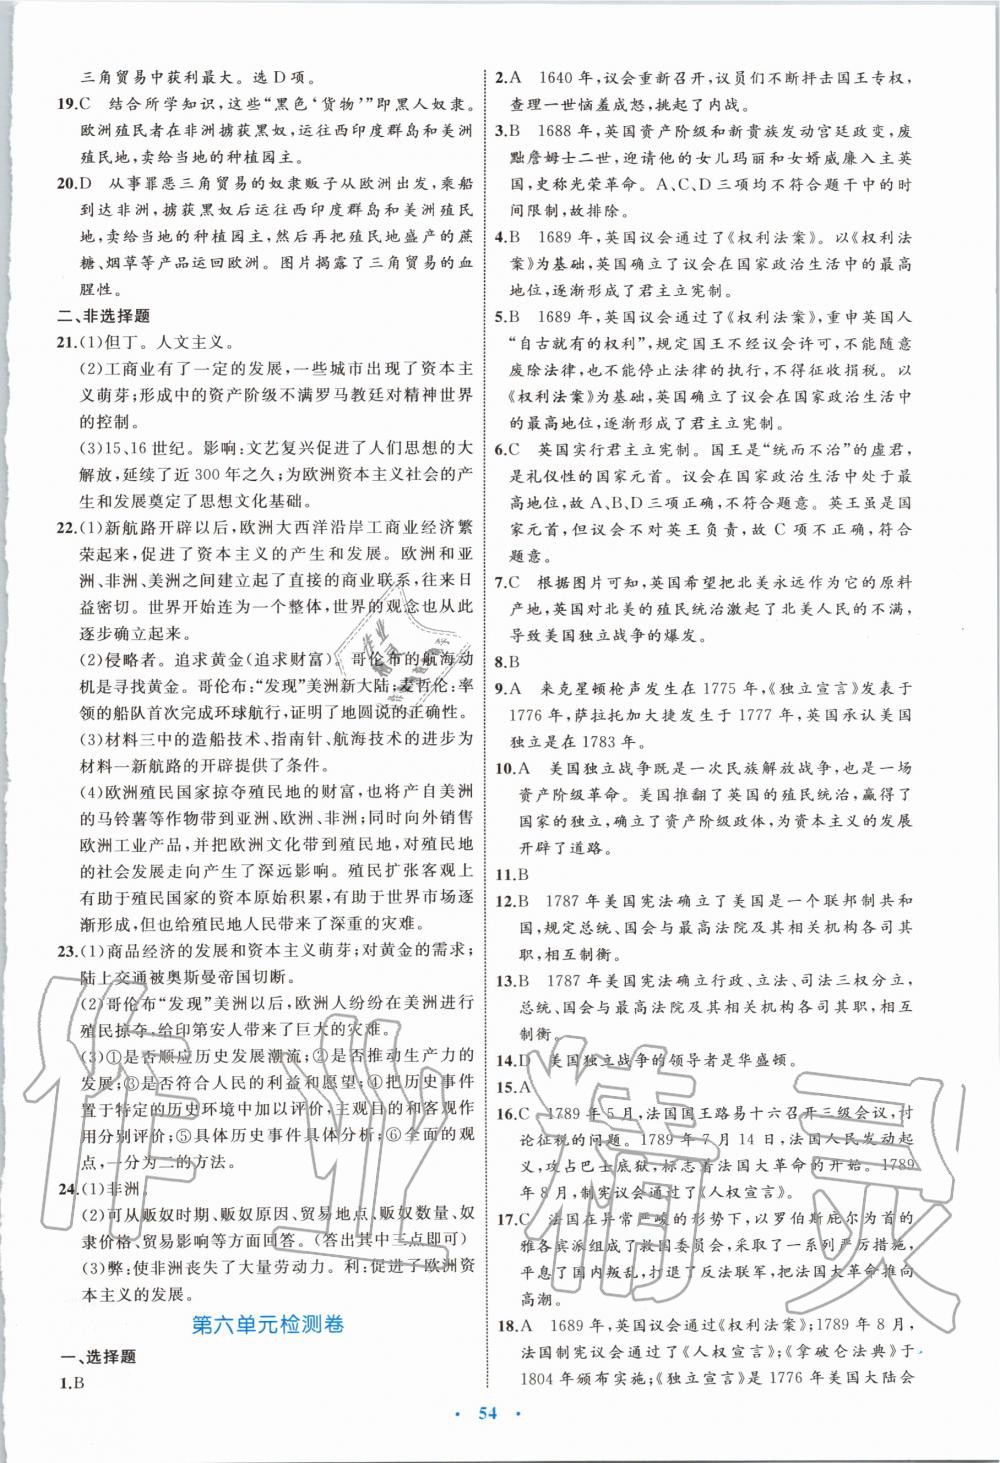 三角贸易中获利最大。选D项。
19.C 结合所学知识，这些“黑色‘货物’”即黑人奴隶。
欧洲殖民者在非洲掳获黑奴，运往西印度群岛和美洲
殖民地，卖给当地的种植园主。
20.D 从事罪恶三角贸易的奴隶贩子从欧洲出发，乘船
到达非洲，掳获黑奴后运往西印度群岛和美洲殖民
地，卖给当地的种植园主，然后再把殖民地盛产的蔗
糖、烟草等产品运回欧洲。图片揭露了三角贸易的血
腥性。
二、非选择题
21.(1)但丁。人文主义。
(2)工商业有了一定的发展，一些城市出现了资本主
义萌芽；形成中的资产阶级不满罗马教廷对精神世界
的控制。
(3)15、16世纪。影响：文艺复兴促进了人们思想的大
解放，延续了近300年之久；为欧洲资本主义社会的产
生和发展奠定了思想文化基础。
22.(1)新航路开辟以后，欧洲大西洋沿岸工商业经济繁
荣起来，促进了资本主义的产生和发展。欧洲和亚
洲、非洲、美洲之间建立起了直接的商业联系，往来日
益密切。世界开始连为一个整体，世界的观念也从此
逐步确立起来。
(2)侵略者。追求黄金(追求财富)。哥伦布的航海动
机是寻找黄金。哥伦布：“发现”美洲新大陆；麦哲伦：率
领的船队首次完成环球航行，证明了地圆说的正确性。
(3)材料三中的造船技术、指南针、航海技术的进步为
材料一新航路的开辟提供了条件。
(4)欧洲殖民国家掠夺殖民地的财富，也将产自美洲
的马铃薯等作物带到亚洲、欧洲、非洲；同时向外销售
欧洲工业产品，并把欧洲文化带到殖民地，对殖民地
的社会发展走向产生了深远影响。殖民扩张客观上
有助于殖民国家的资本原始积累，有助于世界市场逐
渐形成，但给殖民地人民带来了深重的灾难。
23.(1)商品经济的发展和资本主义萌芽；对黄金的需求；
陆上交通被奥斯曼帝国切断。
(2)哥伦布“发现”美洲以后，欧洲人纷纷在美洲进行
殖民掠夺，给印第安人带来了巨大的灾难。
(3)①是否顺应历史发展潮流；②是否推动生产力的
发展；③是否符合人民的利益和愿望；④把历史事件
置于特定的历史环境中加以评价，主观目的和客观作
用分别评价；⑤具体历史事件具体分析；⑥全面的观
点，一分为二的方法。
24.(1)非洲。
(2)可从贩奴时期、贩奴原因、贸易地点、贩奴数量、奴
隶价格、贸易影响等方面回答。(答出其中三点即可)
(3)弊：使非洲丧失了大量劳动力。利：促进了欧洲资
本主义的发展。
第六单元检测卷
一、选择题
1.B
2.A 1640年，议会重新召开，议员们不断抨击国王专权，
查理一世恼羞成怒，挑起了内战。
3.B 1688年，英国资产阶级和新贵族发动宫廷政变，废
黜詹姆士二世，迎请他的女儿玛丽和女婿威廉入主英
国，史称光荣革命。A、C、D三项均不符合题干中的时
间限制，故排除。
4.B 1689年，英国议会通过了《权利法案》。以《权利法
案》为基础，英国确立了议会在国家政治生活中的最高
地位，逐渐形成了君主立宪制。
5.B 1689年，英国议会通过了《权利法案》，重申英国人
“自古就有的权利”，规定国王不经议会许可，不能随意
废除法律，也不能停止法律的执行，不得征收捐税。以
《权利法案》为基础，英国确立了议会在国家政治生活中
的最高地位，逐渐形成了君主立宪制。
6.C 英国实行君主立宪制。国王是“统而不治”的虚君，
是礼仪性的国家元首。议会在国家政治生活中处于最
高地位，故A、B、D三项正确，不符合题意。英王虽是国
家元首，但议会不对英王负责，故C项不正确，符合
题意。
7.C 根据图片可知，英国希望把北美永远作为它的原料
产地，英国对北美的殖民统治激起了北美人民的不满，
导致美国独立战争的爆发。
8.B
9.A 来克星顿枪声发生在1775年，《独立宣言》发表于
1776年，萨拉托加大捷发生于1777年，英国承认美国
独立是在1783年。
10.A 美国独立战争既是一次民族解放战争，也是一场
资产阶级革命。美国推翻了英国的殖民统治，赢得了
国家的独立，确立了资产阶级政体，为资本主义的发展
开辟了道路。
11.B
12.B 1787年美国宪法确立了美国是一个联邦制共和
国，规定总统、国会与最高法院及其相关机构各司其
职，相互制衡。
13.B 1787年美国宪法确立行政、立法、司法三权分立，
总统、国会与最高法院及其相关机构各司其职，相互
制衡。
14.D 美国独立战争的领导者是华盛顿。
15.A
16.C 1789年5月，法国国王路易十六召开三级会议，讨
论征税的问题。1789年7月14日，法国人民发动起
义，攻占巴士底狱，标志着法国大革命的开始。1789
年8月，制宪议会通过了《人权宣言》。
17.C 法国在异常严峻的形势下，以罗伯斯庇尔为首的
雅各宾派组成了救国委员会，采取了一系列严厉措施，
平息了国内叛乱，打退了反法联军，把法国大革命推向
高潮。
18.A 1689年，英国议会通过《权利法案》；1789年8月，
法国制宪议会通过了《人权宣言》；《拿破仑法典》于
1804年颁布实施；《独立宣言》是1776年美国大陆会
· 54 ·
作业精灵